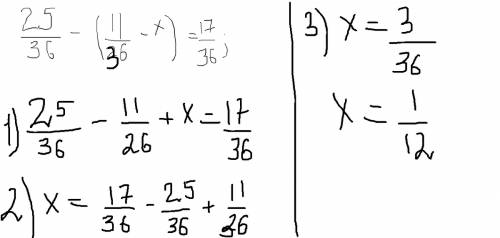 25/36 - (11/36 - x) = 17/36;
1) 25/36 - 11/26 + x = 17/36
2) x = 17/36 - 25/36 + 11/36
3) x = 3/36
x = 1/12